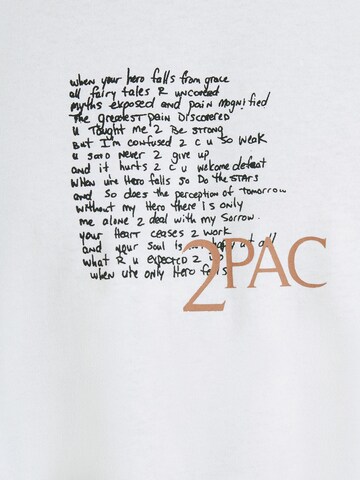 when your hero falls from grace
all fairy tales R uncovered
myths exposed and pain magnified
The greatest pain Discovered
u Taught me 2 Be strong
But I'm confused 2 c u so weak
u said never 2 give up
and it hurts 2 c u welcome defeat
When ure Hero falls so Do the STARS
and so does the perception of tomorrow
without my Hero there is only
me alone 2 deal with my sorrow.
your Heart ceases 2 work
and your soul is not happy at all
what R u expected 2 do
when ure only Hero falls
2PAC